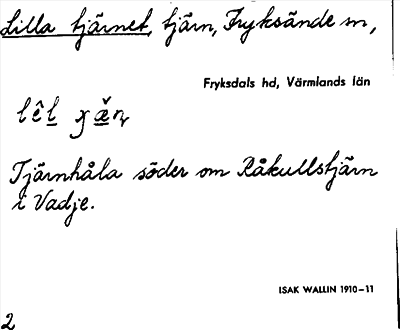 Lilla tjärnet, tjärn, Fryksände sn,
Fryksdals hd, Värmlands län
Tjärnhåla söder om Råkullstjärn
i Vadje.
ISAK WALLIN 1910–11
2